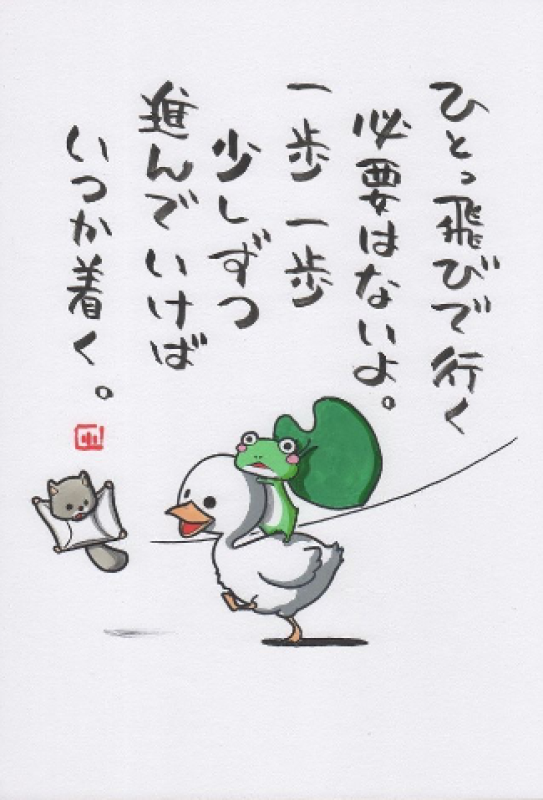 ひとっ飛びで行く
必要はないよ。
一歩一歩
少しずつ
進んでいけば
いつか着く。